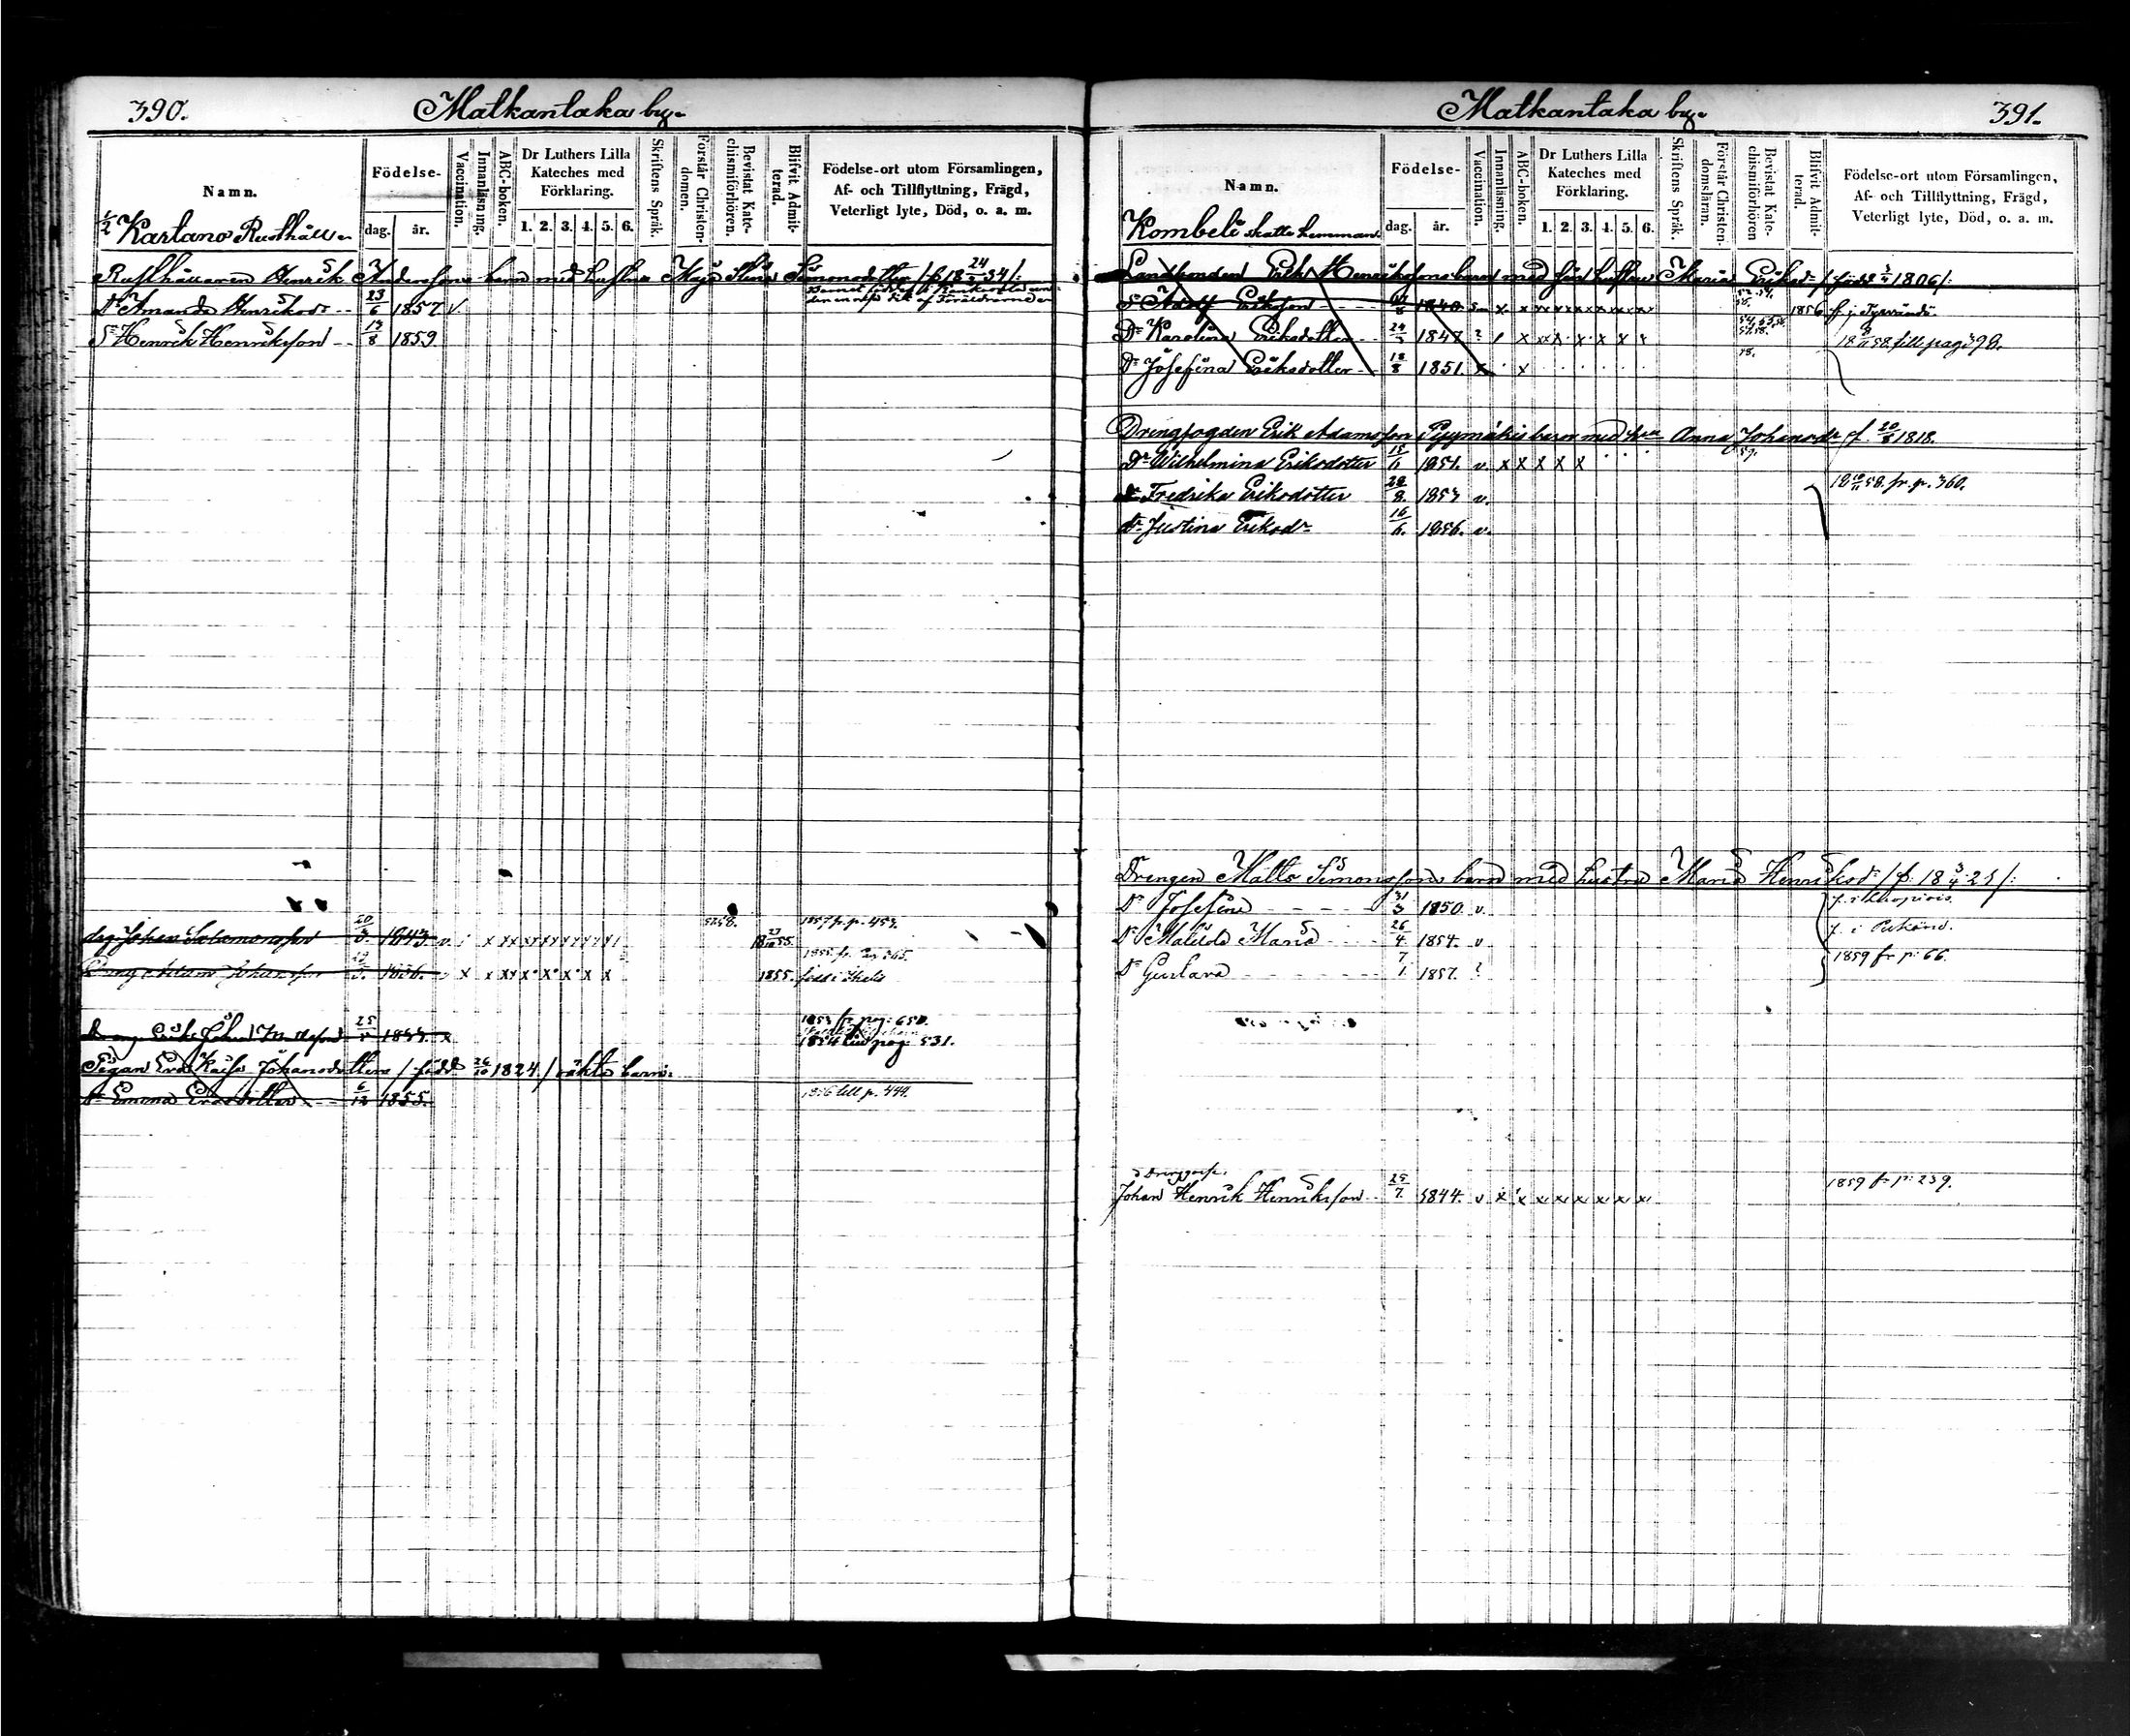 390. Matkantaka by.
Namn. Födelse- dag. år. Vaccination. Innanläsning. ABC-boken. Dr Luthers Lilla Kateches med Förklaring. 1. 2. 3. 4. 5. 6. Skriftens Språk. Förstår Christendomen. Bevistat Katechismiförhören. Blifvit Admitterad. Födelse-ort utom Församlingen, Af- och Tillflyttning, Frägd, Veterligt lyte, Död, o. a. m.
1/2 Kartano Rusthåll
Rusthållaren Henrik Anderssons barn med hustru Maja Stina Simonsdotter /f. 18 24/2 34/:
Dr Amanda Henriksdr 23/6 1857 v.
Sn Henrik Henriksson 13/8 1859
drg Johan Salomonsson 20/3 1843 v x xx xx xx xx xx 5258. 18 23/10 55. 1857 fr. p. 453.
Dräng Adam Johansson 1836. x x xx x x x x x 1855. född i
Dräng Erik Johan Mattsson 25/5 1853. x 1853 fr pag: 650.
1854 till pag: 531.
Pigan Eva Kaisa Johansdotters /född 26/10 1824./ oäkta barn:
dr Emma Evasdotter 6/12 1855. 1856 till p. 444.
Matkantaka by. 391.
Namn. Födelse- dag. år. Vaccination. Innanläsning. ABC-boken. Dr Luthers Lilla Kateches med Förklaring. 1. 2. 3. 4. 5. 6. Skriftens Språk. Förstår Christendomsläran. Bevistat Katechismiförhören Blifvit Admitterad. Födelse-ort utom Församlingen, Af- och Tillflyttning, Frägd, Veterligt lyte, Död, o. a. m.
Kombeli skatte hemman.
Landbonden Erik Henrikssons barn med sin hustru Maria Eriksdr /född 1806/:
Sn Adolf Eriksson 1840. x. x xx xx xx xx xx 1856 f. i Tyrvändö.
Dr Karolina Eriksdotter 1847 ? x xx x x x x 18 58 till pag 398.
Dr Josefina Eriksdotter 18/8 1851. x x
Drengfogden Erik Adamsson Pyymäkis barn med hu Anna Johansdr /f. 20/8 1818.
Dr Wilhelmina Eriksdotter 15/6 1851. v. x x x x x 59.
dr Fredrika Eriksdotter 28/8. 1853 v. 18 58. fr. p. 360.
dr Justina Eriksdr 16/6. 1856. v.
Drengen Matts Simonssons barn med hustru Maria Henriksdr /f. 18 3/4 25/:
Dr Josefina 31/3 1850. v.
Dr Matilda Maria 26/4 1854. v
Dr Gustava 7/1 1857. ? 1859 fr p: 66.
Drenggosse.
Johan Henrik Henriksson 25/7 1844. v x x xx xx x x x x 1859 fr p: 239.